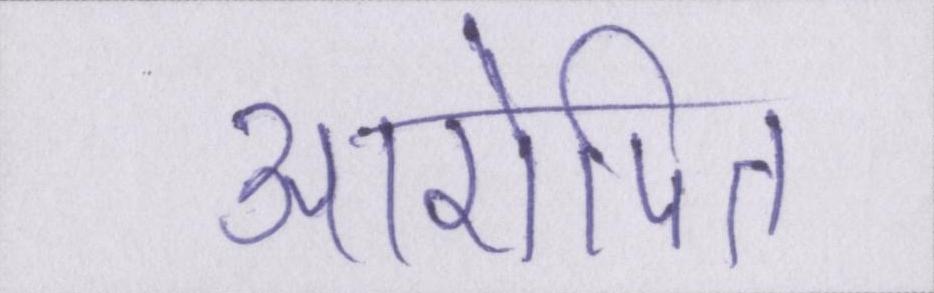 आरोपित